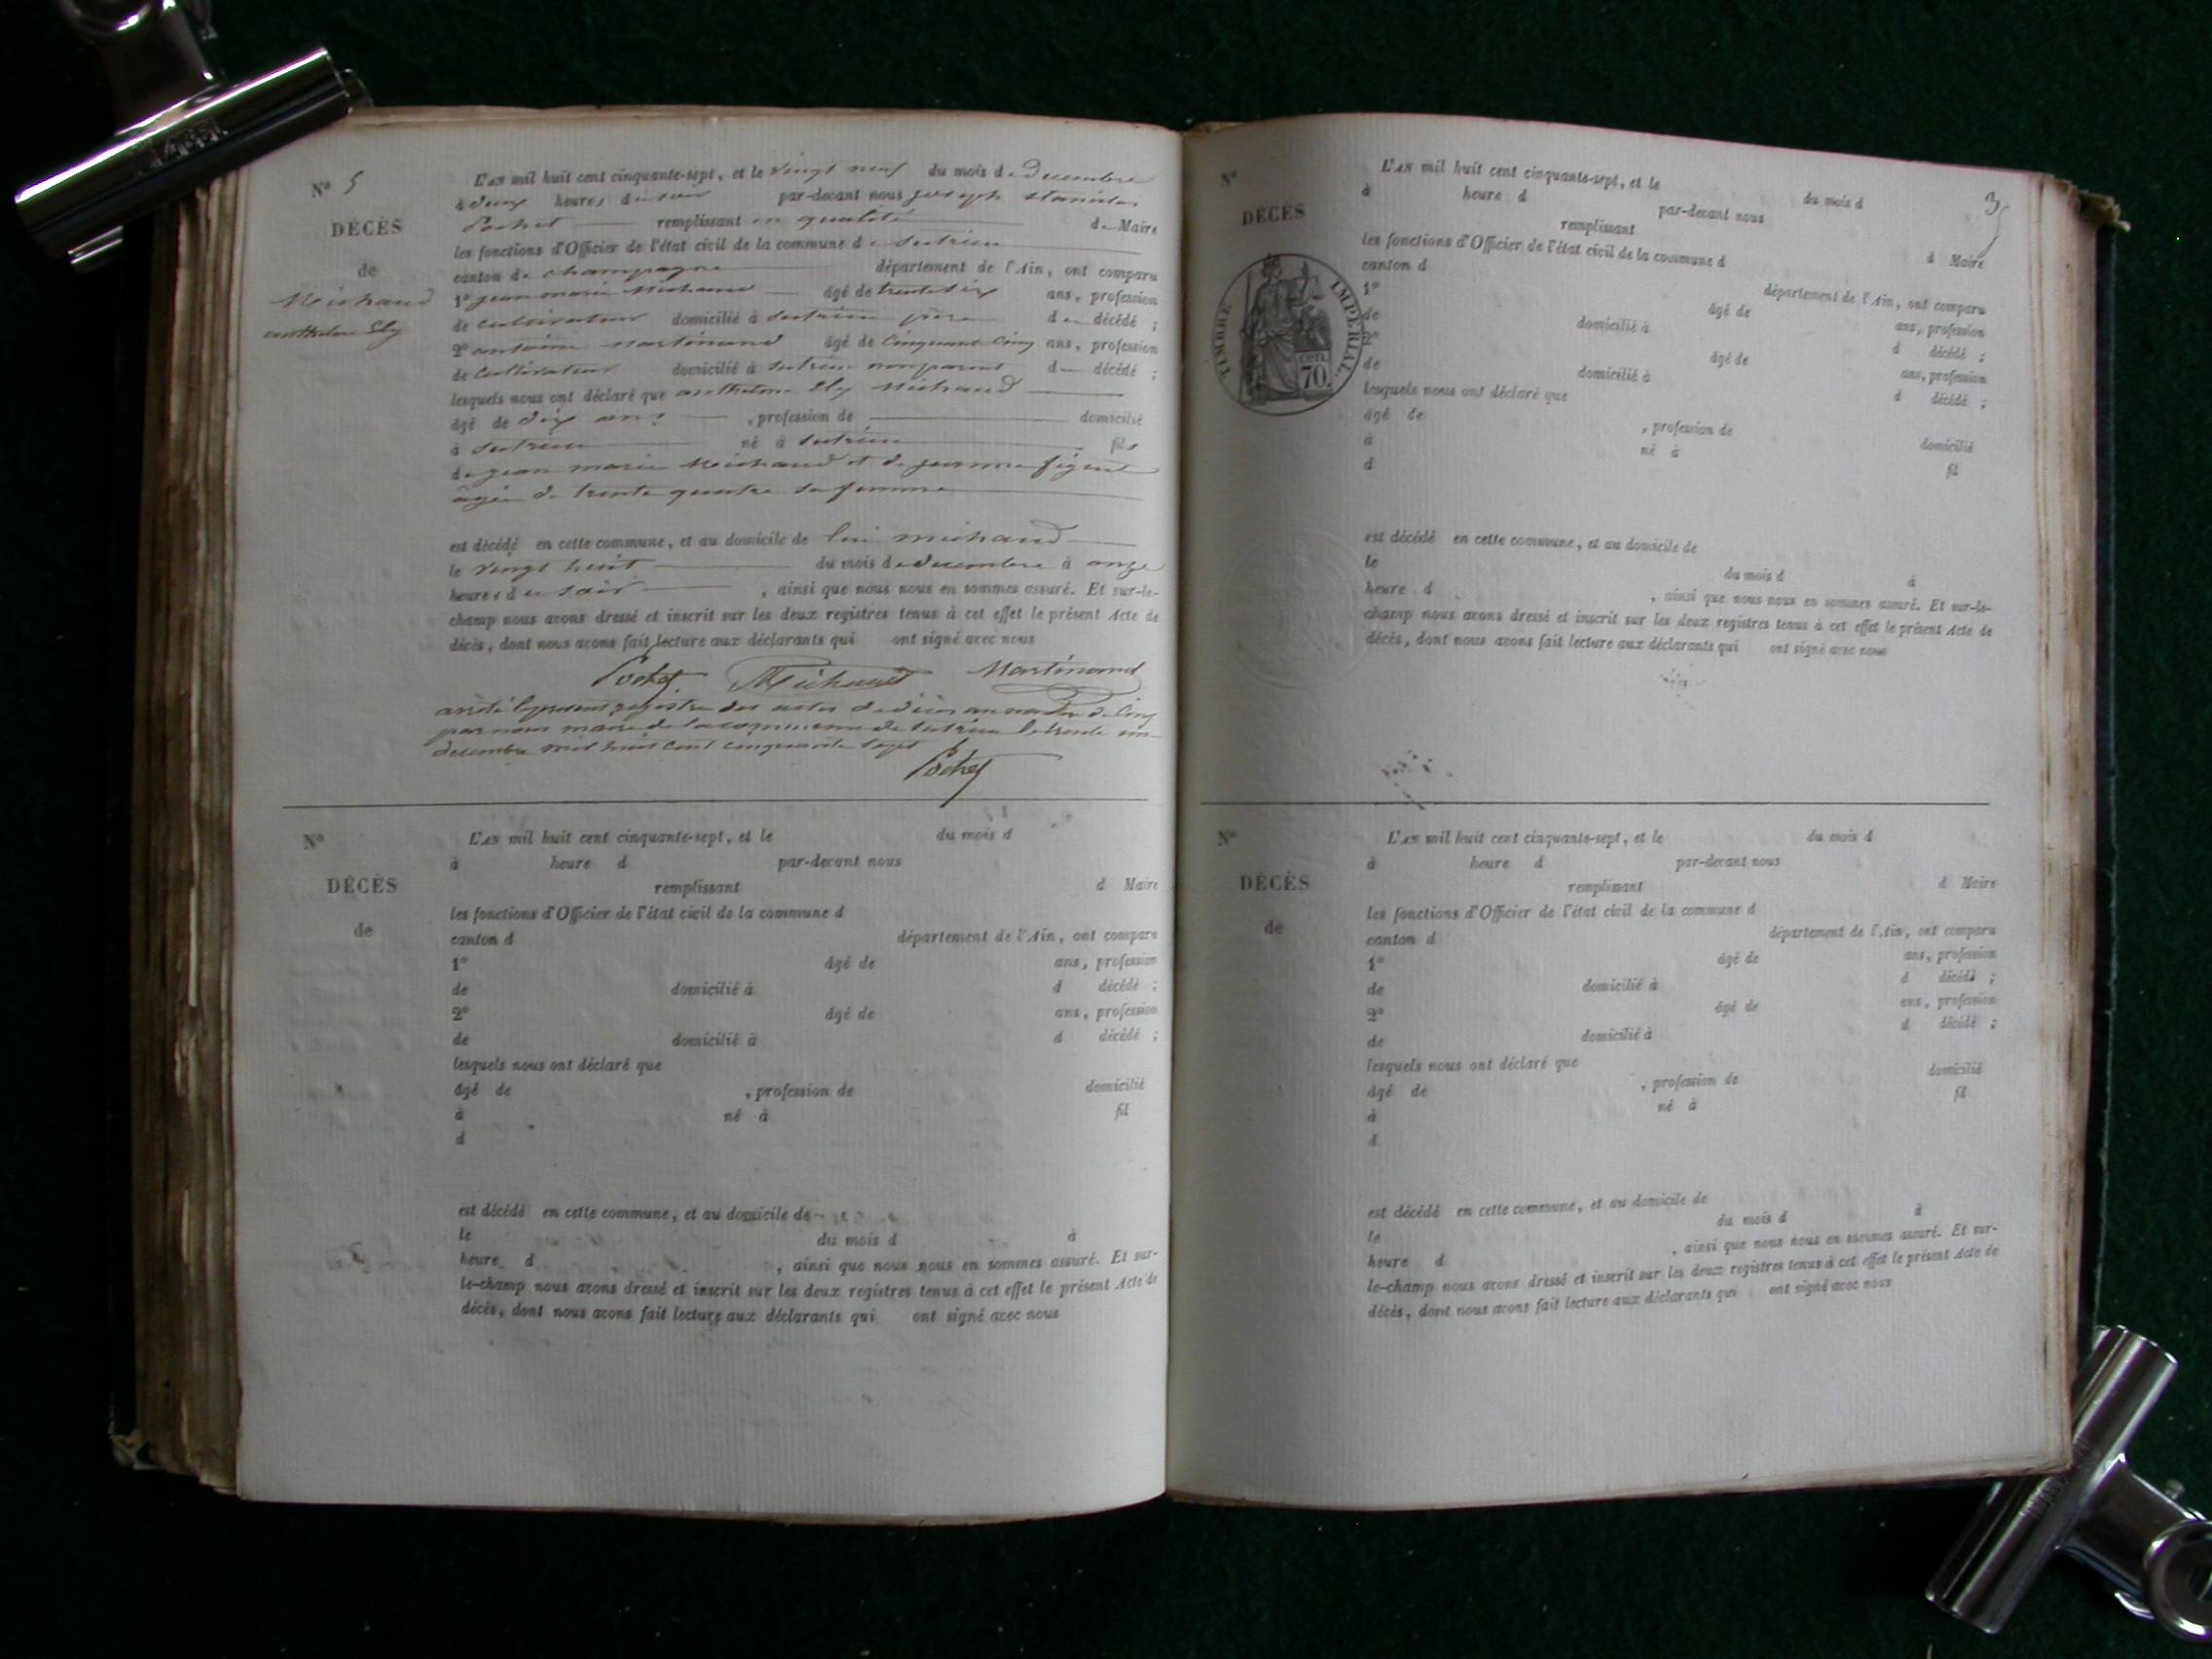 N° 5
DÉCÈS
de
Michaud
anthelme Ely
L'AN mil huit cent cinquante-sept, et le vingt neuf du mois de Decembre
à deux heures du soir par-devant nous joseph stanislas
Pochet remplissant en qualité de Maire
les fonctions d'Officier de l'état civil de la commune de Sutrieu
canton de champagne département de l'Ain, ont comparu
1° jean marie Michaud âgé de trente six ans, profession
de cultivateur domicilié à Sutrieu père du décédé ;
2° antoine Martinand âgé de Cinquante Cinq ans, profession
de Cultivateur domicilié à Sutrieu non parent du décédé ;
lesquels nous ont déclaré que anthelme Ely Michaud
âgé de dix ans , profession de domicilié
à Sutrieu né à Sutrieu fils
de jean marie Michaud et de jeanne
âgée de trente quatre sa femme
est décédé en cette commune, et au domicile de lui michaud
le vingt huit du mois de decembre à onze
heures du soir , ainsi que nous nous en sommes assuré. Et sur-le-
champ nous avons dressé et inscrit sur les deux registres tenus à cet effet le présent Acte de
décès, dont nous avons fait lecture aux déclarants qui ont signé avec nous
Pochet Michaud Martinand
arrêté le present registre des actes de décès au nombre de Cinq
par nous maire de la commune de Sutrieu le trente un
decembre mil huit cent cinquante sept
Pochet
N°
DÉCÈS
de
L'AN mil huit cent cinquante-sept, et le du mois d
à heure d par-devant nous
remplissant d Maire
les fonctions d'Officier de l'état civil de la commune d
canton d département de l'Ain, ont comparu
1° âgé de ans, profession
de domicilié à d décédé ;
2° âgé de ans, profession
de domicilié à d décédé ;
lesquels nous ont déclaré que
âgé de , profession de domicilié
à né à fil
d
est décédé en cette commune, et au domicile de
le du mois d à
heure d , ainsi que nous nous en sommes assuré. Et sur-
le-champ nous avons dressé et inscrit sur les deux registres tenus à cet effet le présent Acte de
décès, dont nous avons fait lecture aux déclarants qui ont signé avec nous
N°
DÉCÈS
TIMBRE IMPÉRIAL
cen.
70.
L'AN mil huit cent cinquante-sept, et le du mois d
à heure d par-devant nous
remplissant d Maire
les fonctions d'Officier de l'état civil de la commune d
canton d département de l'Ain, ont comparu
1° âgé de ans, profession
de domicilié à d décédé ;
2° âgé de ans, profession
de domicilié à d décédé ;
lesquels nous ont déclaré que
âgé de , profession de domicilié
à né à fil
d
est décédé en cette commune, et au domicile de
le du mois d à
heure d , ainsi que nous nous en sommes assuré. Et sur-le-
champ nous avons dressé et inscrit sur les deux registres tenus à cet effet le présent Acte de
décès, dont nous avons fait lecture aux déclarants qui ont signé avec nous
N°
DÉCÈS
de
L'AN mil huit cent cinquante-sept, et le du mois d
à heure d par-devant nous
remplissant d Maire
les fonctions d'Officier de l'état civil de la commune d
canton d département de l'Ain, ont comparu
1° âgé de ans, profession
de domicilié à d décédé ;
2° âgé de ans, profession
de domicilié à d décédé ;
lesquels nous ont déclaré que
âgé de , profession de domicilié
à né à fil
d
est décédé en cette commune, et au domicile de
le du mois d à
heure d , ainsi que nous nous en sommes assuré. Et sur-
le-champ nous avons dressé et inscrit sur les deux registres tenus à cet effet le présent Acte de
décès, dont nous avons fait lecture aux déclarants qui ont signé avec nous